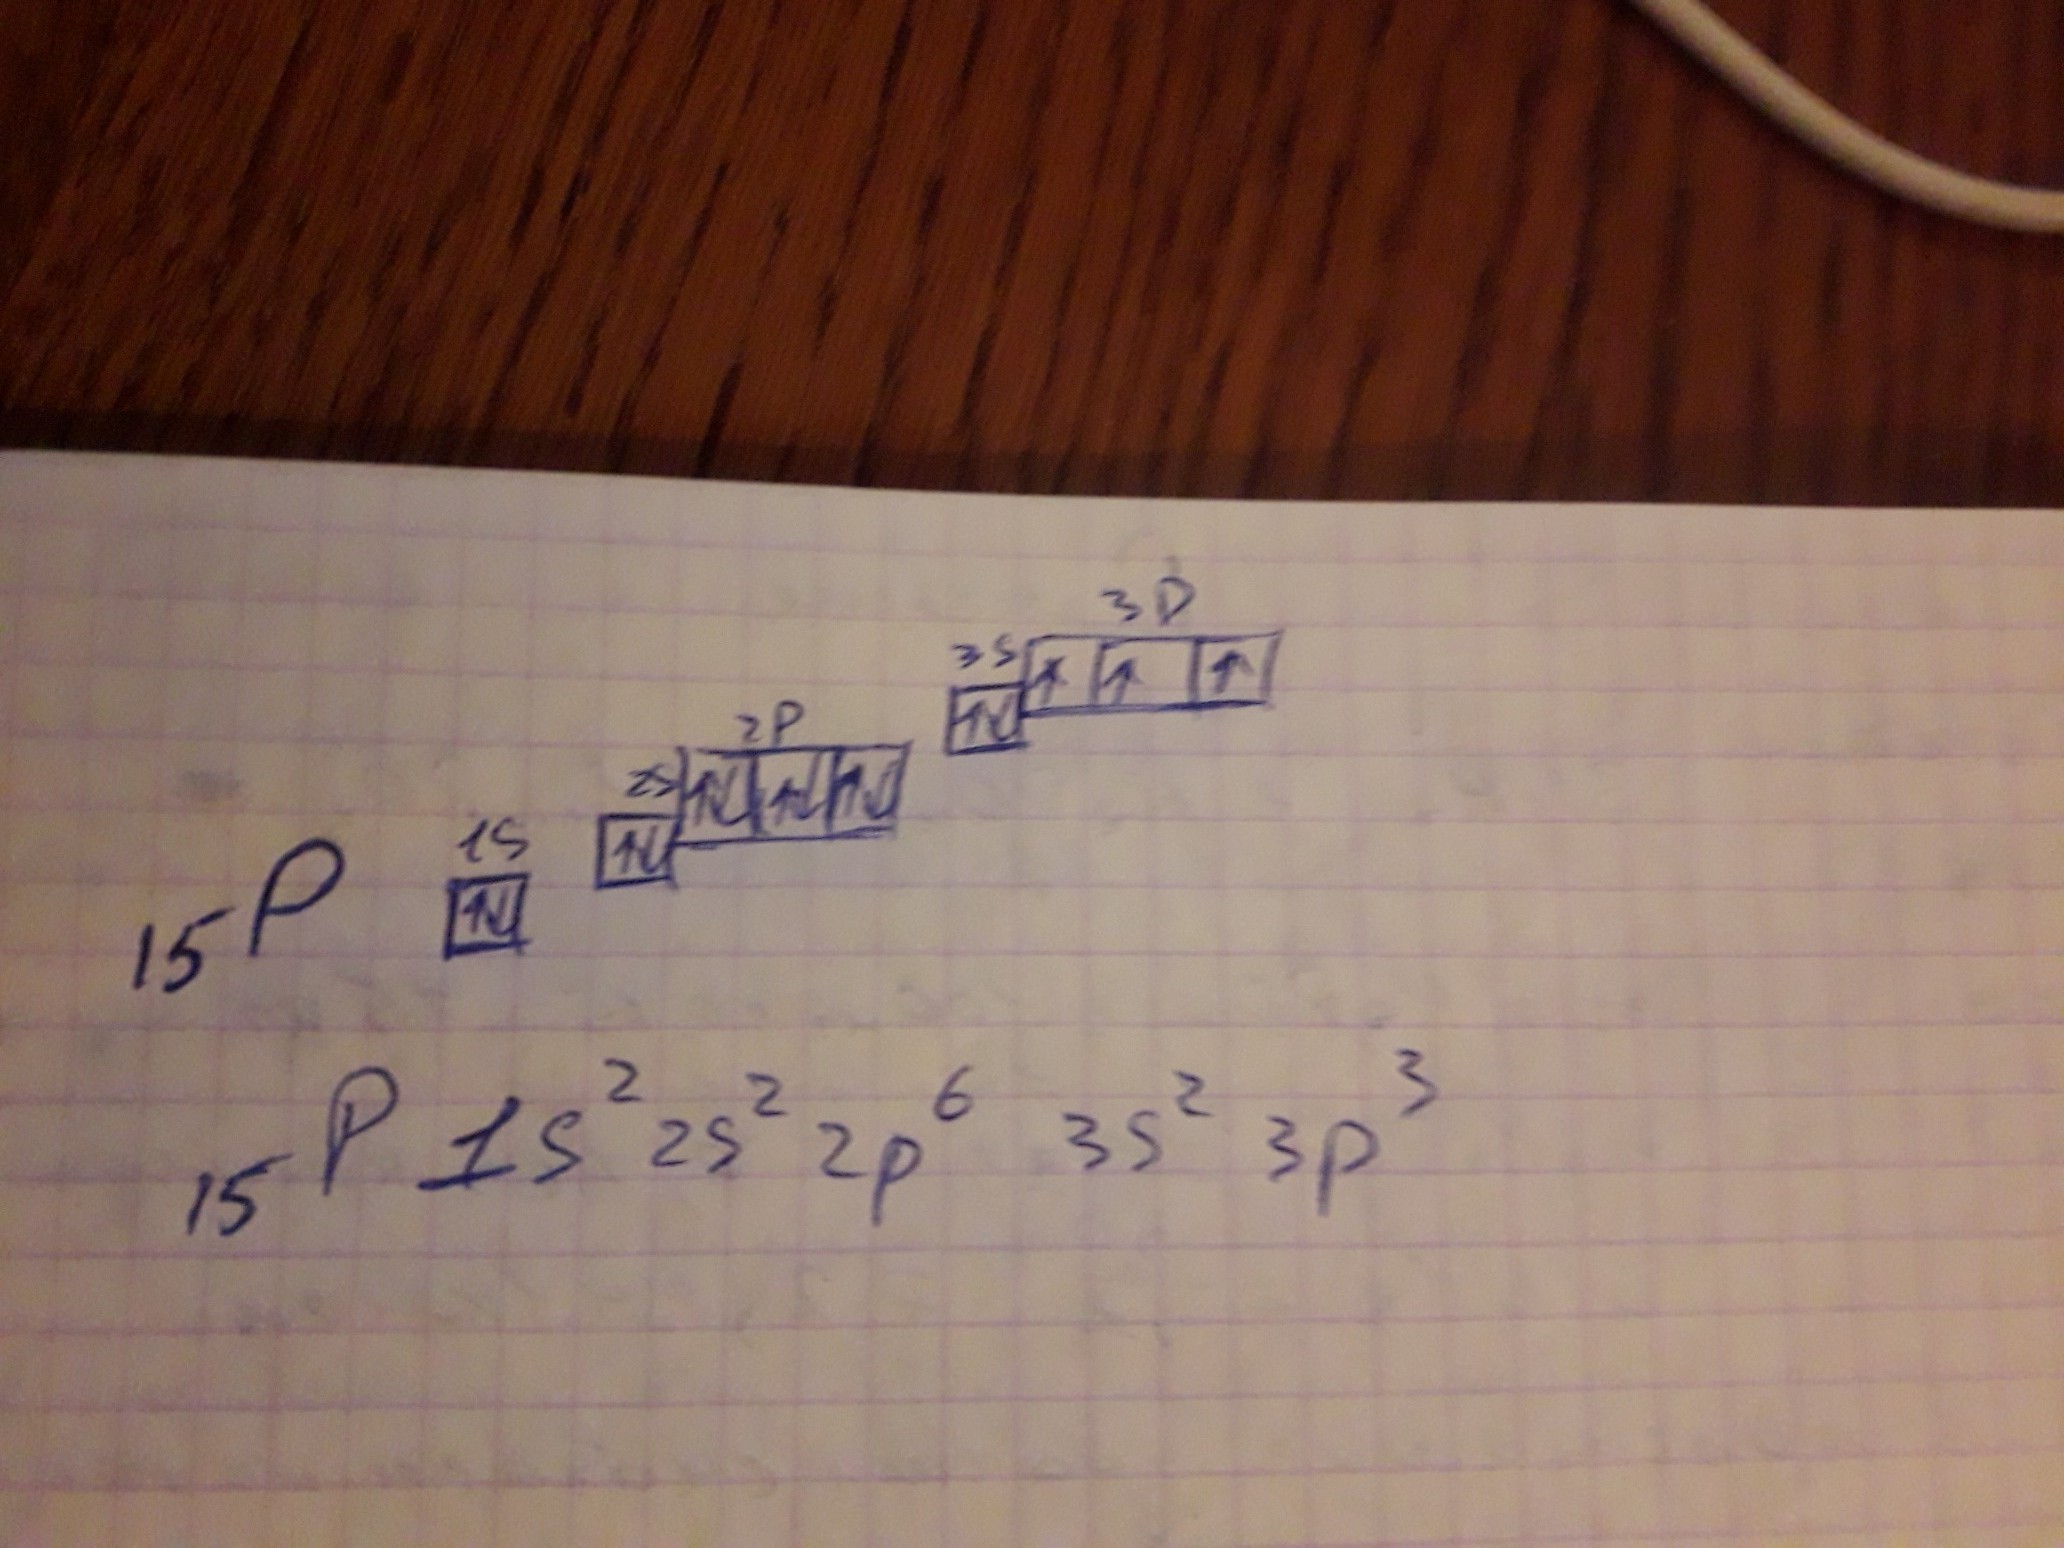 3P
3S
2P
2S
1S
15P
15P 1s² 2s² 2p⁶ 3s² 3p³